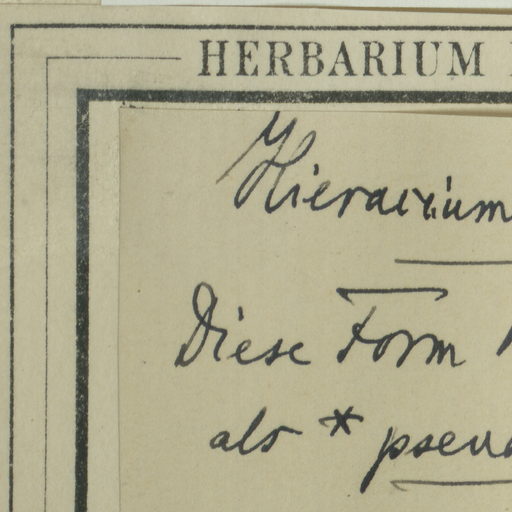 HERBARIUM
Hieracium
Diese Form
als * pseud